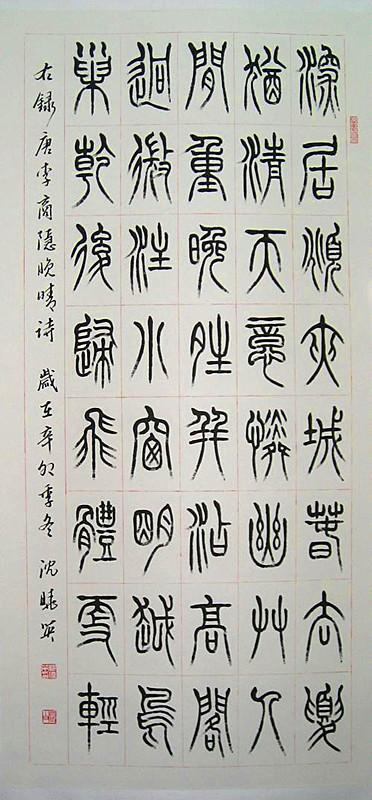 深居頫夾城春去夏
猶清天意憐幽艸人
間重晚晴并沾高閣
迥微注小窗明越鳥
巢乾後歸飛體更輕
右録唐李商隱晚晴诗 歲在辛卯季冬 沈英